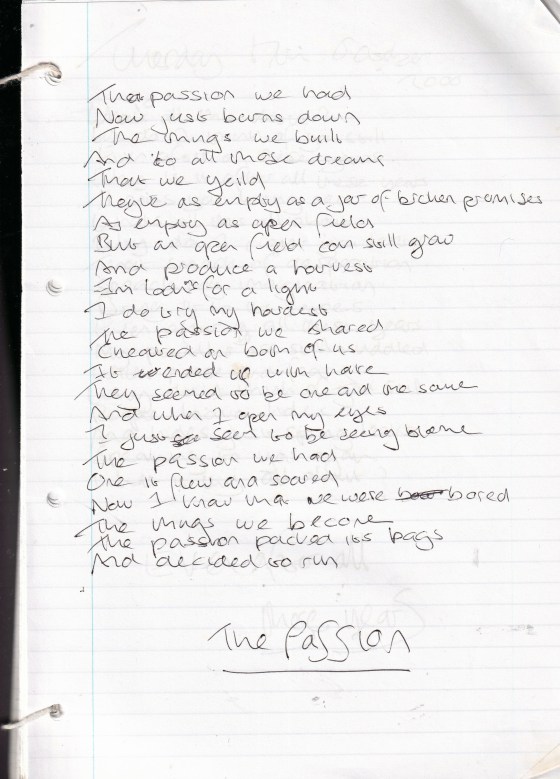 The passion we had
Now just burns down
The things we built
And to all those dreams
That we yeild
They're as empty as a jar of broken promises
As empty as open field
But an open field can still grow
And produce a harvest
I'm lookin for a light
I do try my hardest
The passion we shared
Cheated on both of us
It ended up with hate
They seemed to be one and the same
And when I open my eyes
I just seem to be seeing blame
The passion we had
One it flew and soared
Now I know that we were bored
The things we become
The passion packed its bags
And decided to run
The Passion